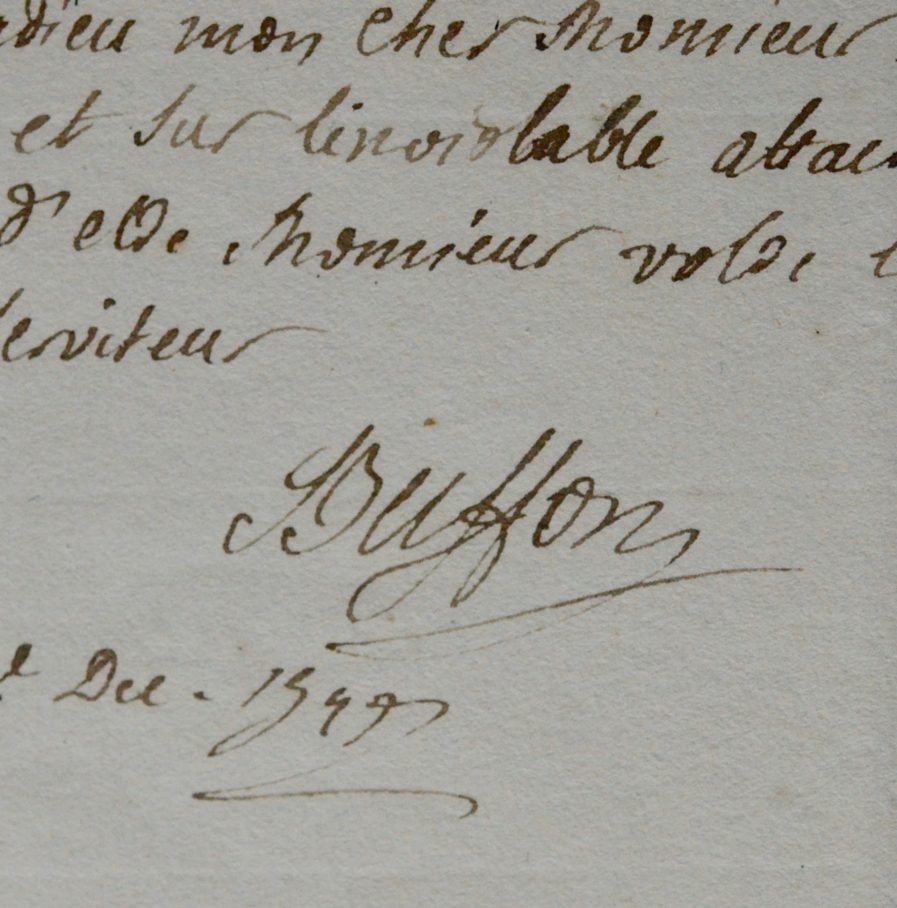 adieu mon cher Monsieur
et sur linviolable attac
d'elde Monsieur votre
serviteur
Buffon
Dec. 1747